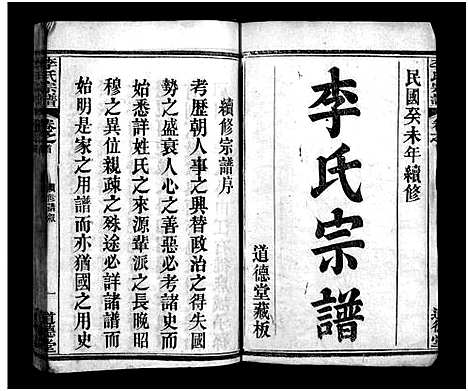 民國癸未年續修
李氏宗譜
道德堂藏板
續修宗譜序
考歷朝人事之興替政治之得失國
勢之盛衰人心之善惡必考諸史而
始悉詳姓氏之來源輩派之長晚昭
穆之異位親疎之殊途必詳諸譜而
始明是家之用譜而亦猶國之用史
一
道德堂